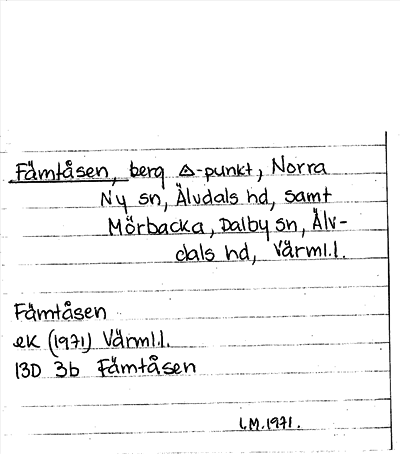 Fämtåsen, berg △-punkt, Norra
Ny sn, Älvdals hd, samt
Mörbacka, Dalby sn, Älv-
dals hd, Värml.l.
Fämtåsen
ek (1971) Värml.l.
13D 3b Fämtåsen
L.M. 1971.